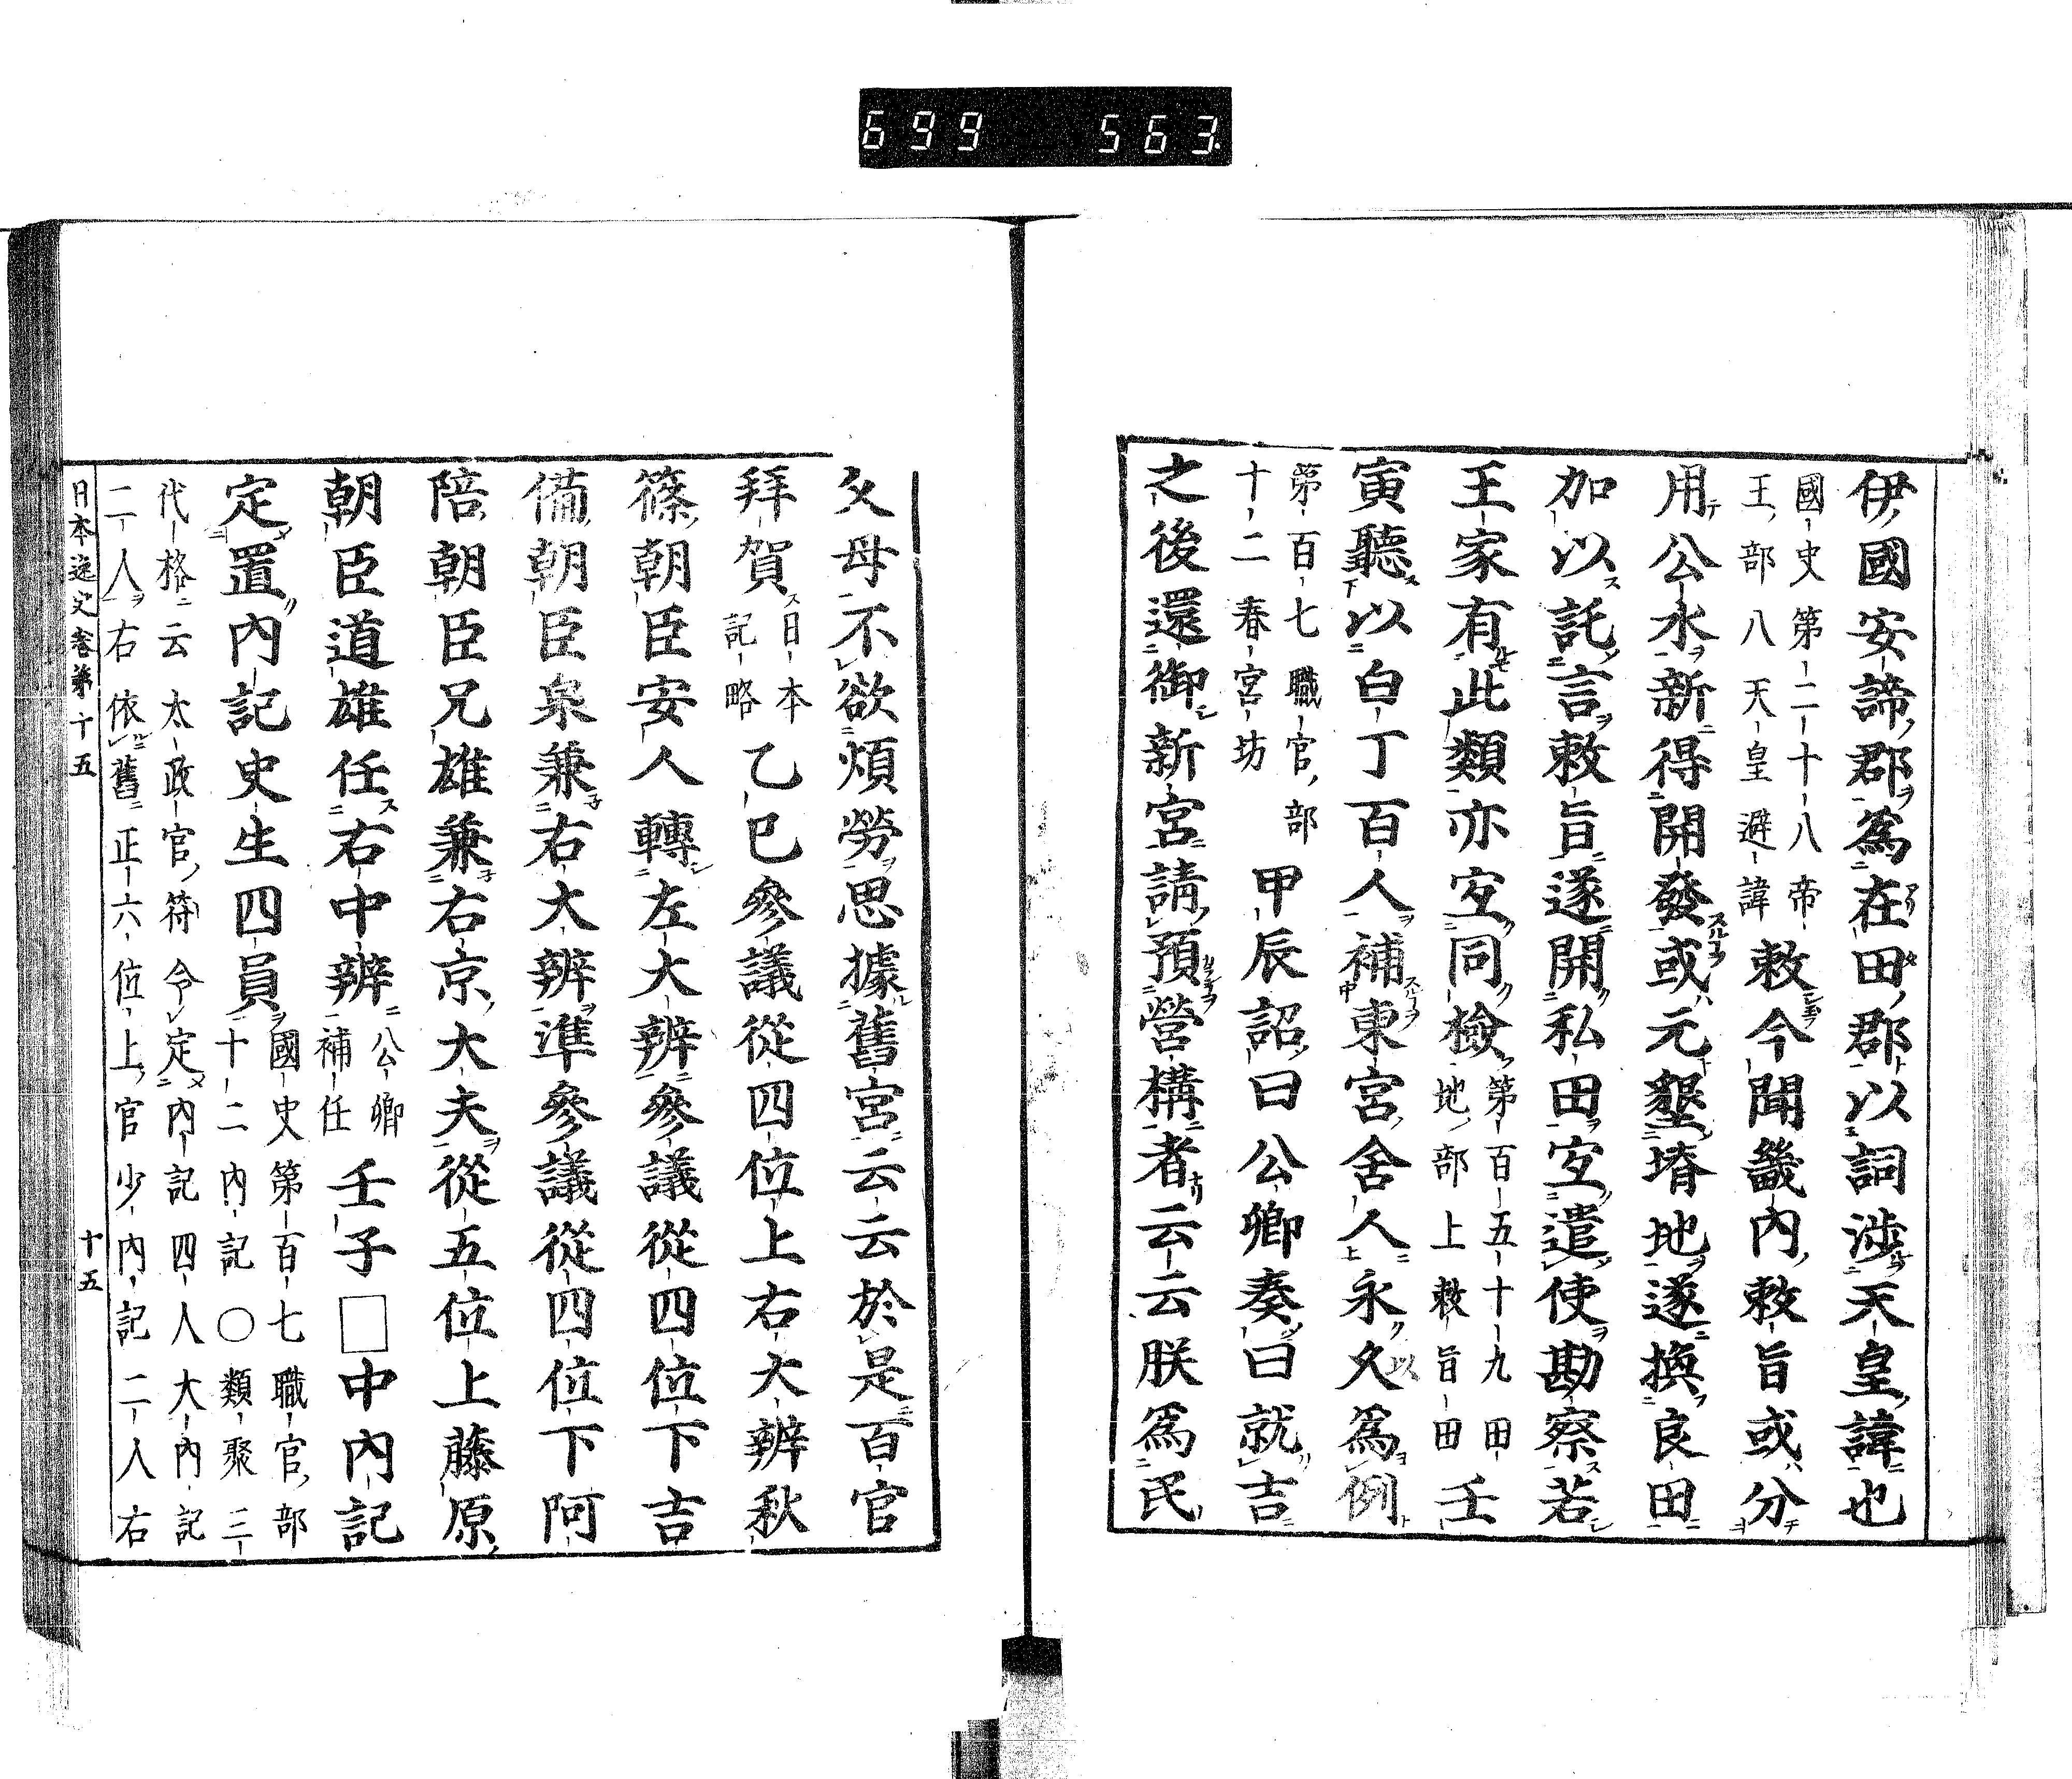 699 563
伊國安諦郡爲在田郡以詞涉天皇諱也
國史第二十八帝
王部八天皇避諱
敕今聞畿內敕旨或分
用公水新得開發或元墾堉地遂換良田
加以託言敕旨遂開私田宜遣使勘察若
王家有此類亦宜同檢
第百五十九田
地部上敕旨田
壬
寅聽以白丁百人補東宮舍人永久爲例
第百七職官部
十二春宮坊
甲辰詔曰公卿奏曰就吉
之後還御新宮請預營構者云云朕爲民
父母不欲煩勞思據舊宮云云於是百官
拜賀
日本
記略
乙巳參議從四位上右大辨秋
篠朝臣安人轉左大辨參議從四位下吉
備朝臣泉兼右大辨準參議從四位下阿
陪朝臣兄雄兼右京大夫從五位上藤原
朝臣道雄任右中辨
公卿
補任
壬子□中內記
定置內記史生四員
國史第百七職官部
十二內記〇類聚三
代格云太政官符令定內記四人大內記
二人右依舊正六位上官少內記二人右
日本逸史卷第十五
十五